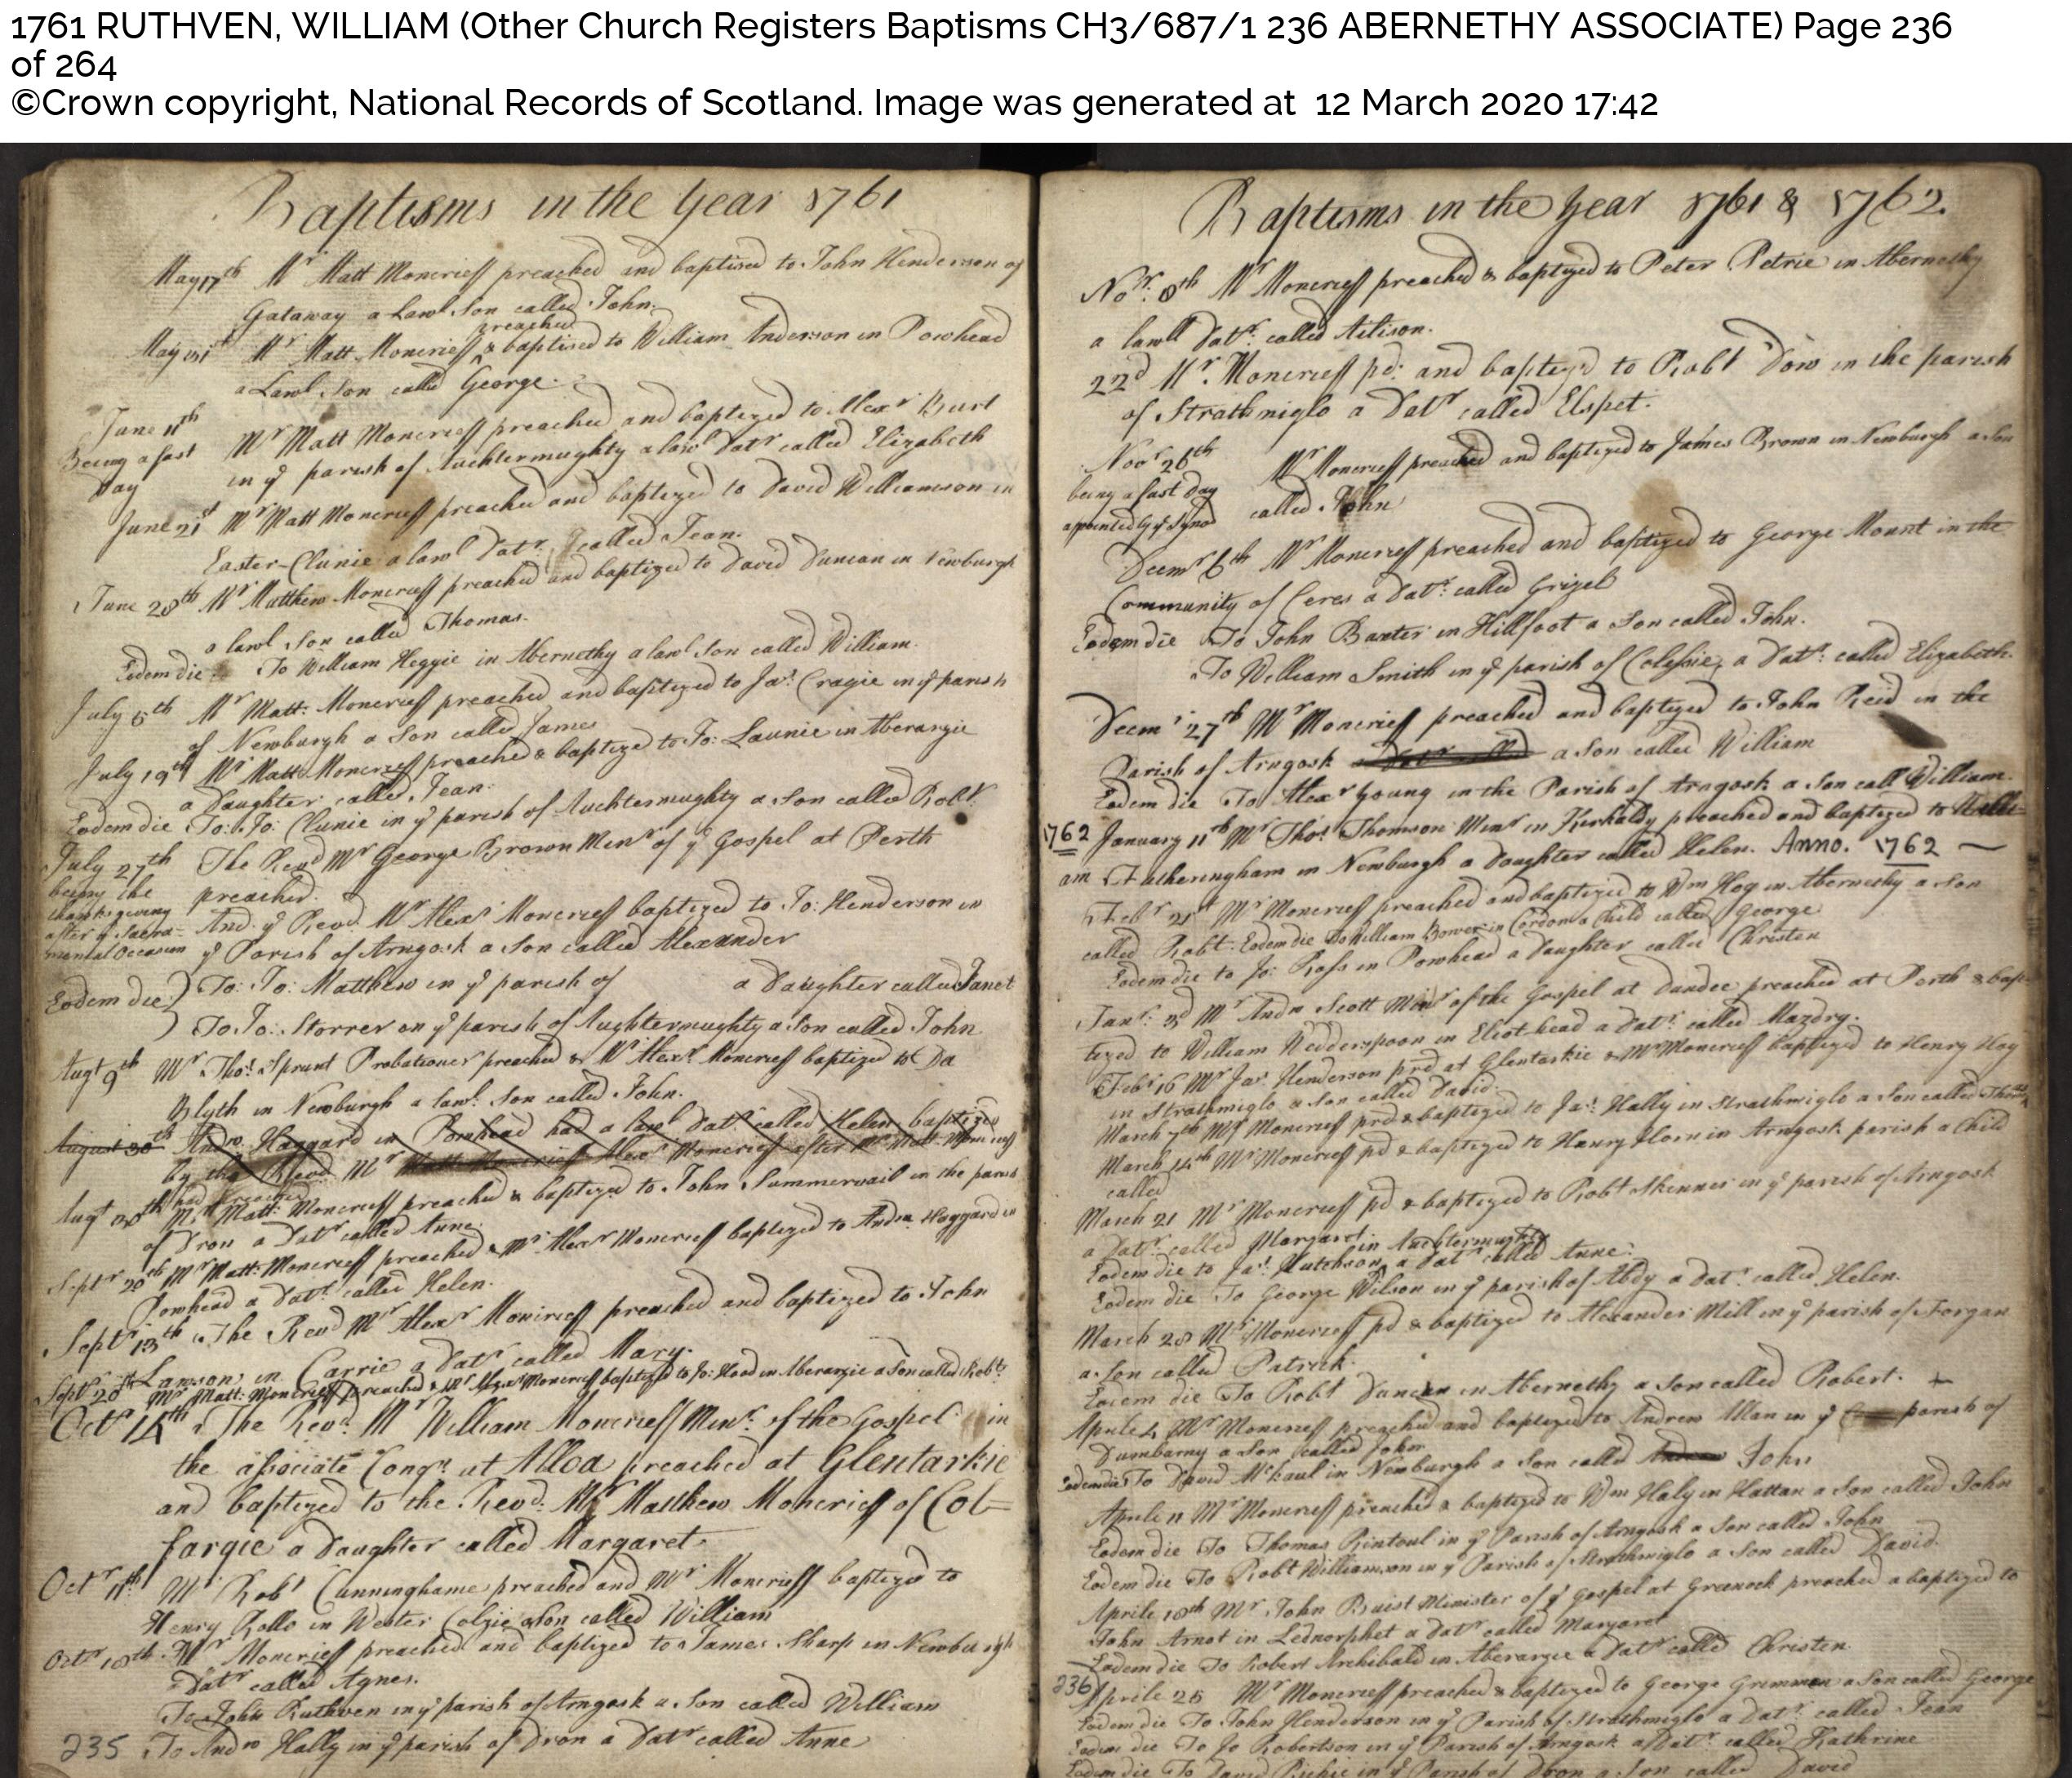 1761 RUTHVEN, WILLIAM (Other Church Registers Baptisms CH3/687/1 236 ABERNETHY ASSOCIATE) Page 236
of 264
©Crown copyright, National Records of Scotland. Image was generated at 12 March 2020 17:42
Baptisms in the Year 1761
May 17th Mr Matt Moncrieff preached and baptised to John Henderson of
Gataway a Lawl Son called John.
preached
May 31st Mr Matt Moncrieff & baptised to William Anderson in Powhead
a Lawl Son called George.
June 11th
Being a fast Mr Matt Moncrieff preached and baptized to Alexr Burt
Day in ye parish of Auchtermughty a lawl Datr called Elizabeth
June 21st Mr Matt Moncrieff preached and baptized to David Williamson in
Easter-Clunie a lawl Datr called Jean.
June 28th Mr Matthew Moncrieff preached and baptized to David Duncan in Newburgh
a lawl Son called Thomas.
Eodem die To William Heggie in Abernethy a lawl Son called William.
July 5th Mr Matt: Moncrieff preached and baptized to Jas: Cragie in ye parish
of Newburgh a Son called James
July 19th Mr Matt: Moncrieff preached & baptized to Jo: Launie in Aberargie
a Daughter called Jean.
Eodem die To: Jo: Clunie in ye parish of Auchtermughty a Son called Robt.
July 27th The Revd Mr George Brown Minr of ye Gospel at Perth
being the preached.
thanksgiving
after ye Sacra- And ye Revd. Mr Alexr Moncrieff baptized to Jo: Henderson in
mental Occasion ye Parish of Arngosk a Son called Alexander
Eodem die To: Jo: Matthew in ye parish of a Daughter called Janet
To Jo: Storrer in ye parish of Aughtermughty a Son called John
Augt 9th Mr Thos: Sprunt Probationer preached & Mr Alexr: Moncrieff baptized to Da
Blyth in Newburgh a lawl: Son called John.
August 30th Andw. Haggard in Powhead had a lawl Datr called Helen baptized
by the Revd. Mr Matt Moncrieff Alexr Moncrieff after Mr Matt: Moncrieff
had preached
Augt 30th Mr Matt: Moncrieff preached & baptized to John Summervail in the parish
of Dron a Datr called Anne.
Septr 20th Mr Matt: Moncrieff preached & Mr Alexr Moncrieff baptized to Andw. Haggard in
Powhead a Datr. called Helen.
Septr 13th The Revd Mr Alexr Moncrieff preached and baptized to John
Lawson in Carrie a Datr called Mary.
Septr 20th Mr Matt: Moncrieff preached & Mr Alexr Moncrieff baptized to Jo: Hood in Aberargie a Son called Robt.
Octr 14th The Revd. Mr William Moncrieff Minr. of the Gospel in
the associate Congn. at Alloa preached at Glentarkie
and baptized to the Revd. Mr Matthew Moncrieff of Col=
fargie a Daughter called Margaret.
Octr 11th Mr Robt Cunninghame preached and Mr Moncrieff baptized to
Henry Rollo in Wester Colzie a Son called William
Octr 18th Mr Moncrieff preached and baptized to James Sharp in Newburgh
a Datr called Agnes.
To John Ruthven in ye parish of Arngosk a Son called William
235 To Andw Hally in ye parish of Dron a Datr called Anne
Baptisms in the Year 1761 & 1762.
Novr. 8th Mr Moncrieff preached & baptized to Peter Petrie in Abernethy
a lawll Datr. called Ailison.
22d Mr. Moncrieff pd: and baptizd to Robt Dow in the parish
of Strathmiglo a Datr called Elspet.
Novr 26th
being a fast Day Mr Moncrieff preached and baptized to James Brown in Newburgh a Son
appointed by ye Synod called John
Decmr 6th Mr Moncrieff preached and baptized to George Mount in the
Community of Ceres a Datr. called Grizel
Eodem die To John Baxter in Hillfoot a Son called John.
To William Smith in ye parish of Colessie, a Datr: called Elizabeth.
Decmr 27th Mr Moncrieff preached and baptized to John Reid in the
Parish of Arngosk a Son called William
Eodem die To Alexr Young in the Parish of Arngosk a Son call William.
1762 January 11th Mr Thos: Thomson Minr in Kirkaldy preached and baptized to Willi-
am Futheringham in Newburgh a Daughter called Helen. Anno. 1762
Febr 21st Mr Moncrieff preached and baptized to Wm Hog in Abernethy a Son
called Robt. Eodem die to William Bower in Cordon a Child called George
Eodem die to Jo: Ross in Powhead a Daughter called Christen
Janr: 3d Mr Andw Scott Minr of the Gospel at Dundee preached at Perth & bap-
tized to William Wedderspoon in Eliot-head a Datr. called Mazdry.
Febr 16 Mr Jas: Henderson prd at Glentarkie & Mr Moncrieff baptized to Henry Hog
in Strathmiglo a Son called David.
March 7th Mr Moncrieff prd & baptized to Jas: Hally in Strathmiglo a Son called Thomas
March 14th Mr Moncrieff pd & baptized to Hanry Horn in Arngosk parish a Child
called
March 21 Mr Moncrieff pd & baptized to Robt Skinner in ye parish of Arngosk
a Datr: called Margaret.
in Auchtermughty
Eodem die to Jas: Hutchson, a Datr called Anne.
Eodem die To George Wilson in ye parish of Abdy a Datr: called Helen.
March 28 Mr Moncrieff pd & baptized to Alexander Mill in ye parish of Forgan
a Son called Patrick.
Eodem die To Robt Duncan in Abernethy a Son called Robert.
Aprile 4 Mr Moncrieff preached and baptized to Andrew Allan in ye parish of
Dumbarny a Son called John
Eodem die To David Mckaul in Newburgh a Son called John
Aprile 11 Mr Moncrieff preached & baptized to Wm Haly in Hattan a Son called John
Eodem die To Thomas Rintoul in ye Parish of Arngosk a Son called John
Eodem die To Robt Williamson in ye Parish of Strathmiglo a Son called David.
Aprile 18th Mr John Buist Minister of ye Gospel at Greenock preached & baptized to
John Arnot in Lednorphet a Datr called Margaret
Eodem die To Robert Archibald in Aberargie a Datr called Christen.
236 Aprile 25 Mr Moncrieff preached & baptized to George Grimman a Son called George
Eodem die To John Henderson in ye Parish of Strathmiglo a Datr: called Jean
Eodem die To Jo Robertson in ye Parish of Arngosk a Datr: called Kathrine
Eodem die To David Richie in ye Parish of Dron a Son called David